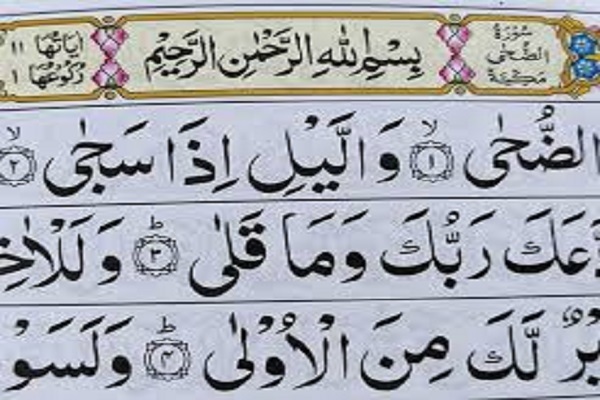 سُوْرَةُ الضُّحٰى مَكِّيَّةٌ
بِسْمِ اللّٰهِ الرَّحْمٰنِ الرَّحِيْمِ
اٰيَاتُهَا ١١ رُكُوْعُهَا ١
الضُّحٰى ۙ﴿١﴾ وَالَّيْلِ اِذَا سَجٰى ۙ﴿٢﴾
دَّعَكَ رَبُّكَ وَمَا قَلٰى ؕ﴿٣﴾ وَلَلْاٰخِ
يْرٌ لَّكَ مِنَ الْاُوْلٰى ؕ﴿۴﴾ وَلَسَوْ